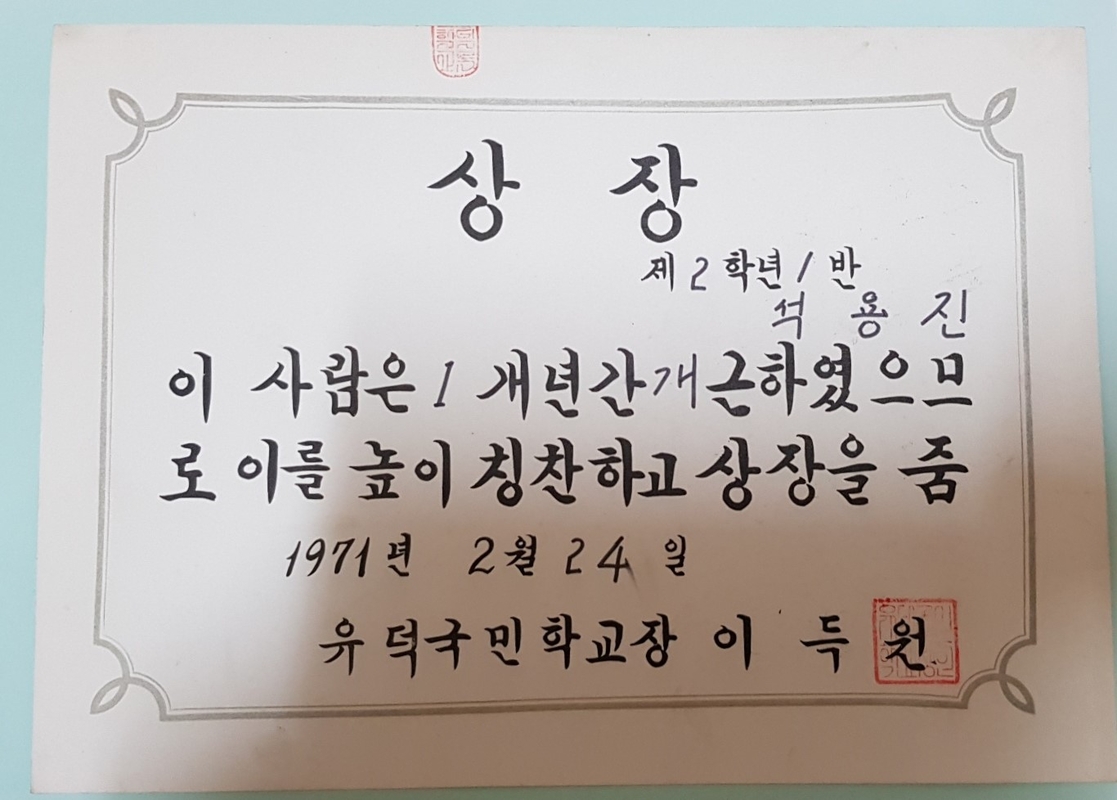 상 장
제 2 학년 1 반
석 용 진
이 사람은 1 개년간 개근하였으므
로 이를 높이 칭찬하고 상장을 줌
1971년 2월 24 일
유덕국민학교장 이 득 원